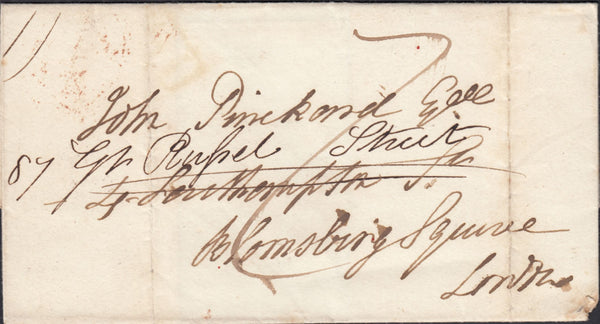 John Pinckard Esqe
87 Gt Russel Street
4 Southampton St
Blomsbury Square
London